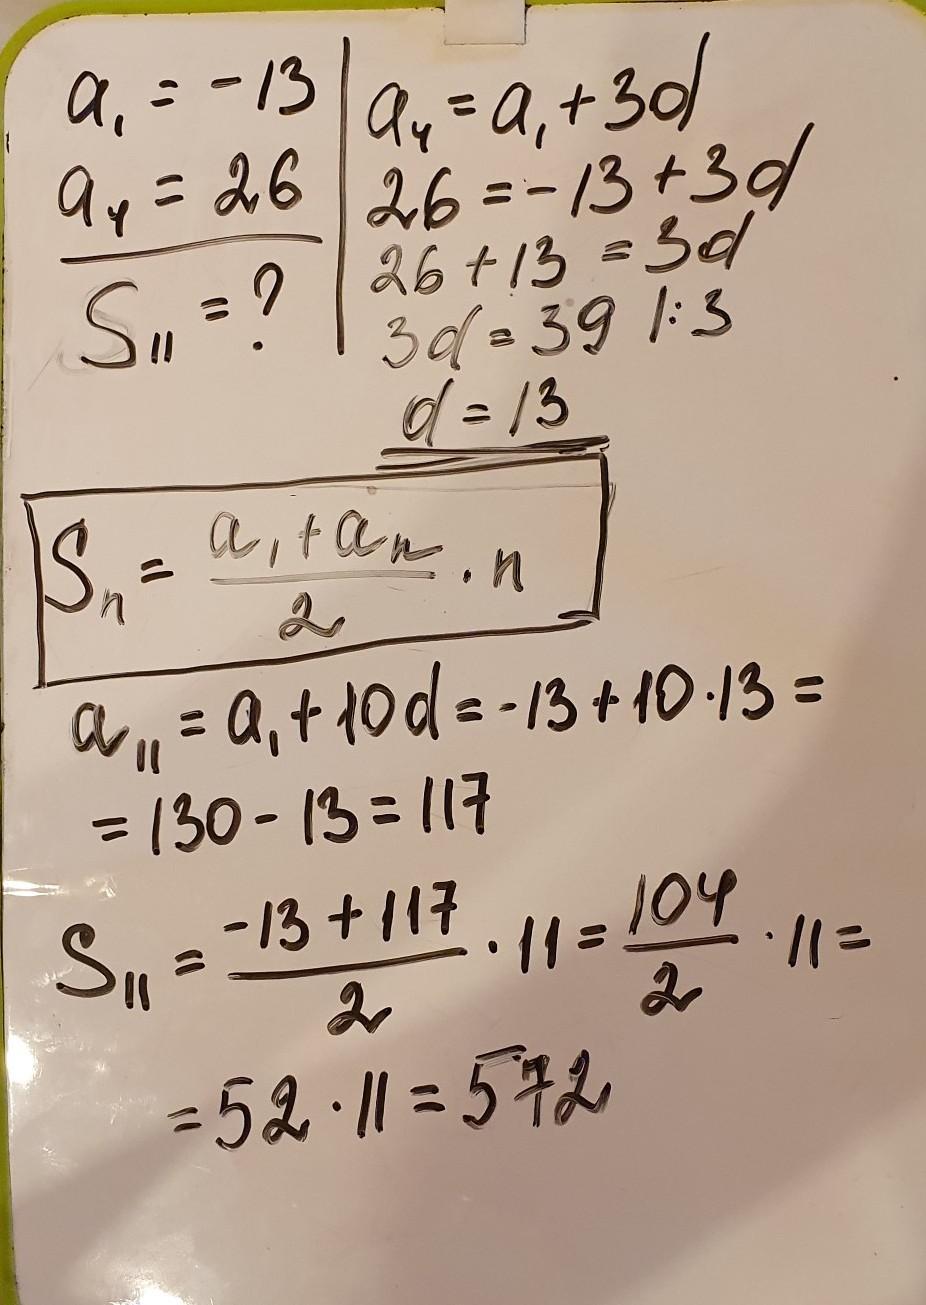 a₁ = -13
a₄ = 26
S₁₁ = ?
a₄ = a₁ + 3d
26 = -13 + 3d
26 + 13 = 3d
3d = 39 |:3
d = 13
Sₙ = (a₁ + aₙ)/2 · n
a₁₁ = a₁ + 10d = -13 + 10·13 =
= 130 - 13 = 117
S₁₁ = (-13 + 117)/2 · 11 = 104/2 · 11 =
= 52 · 11 = 572